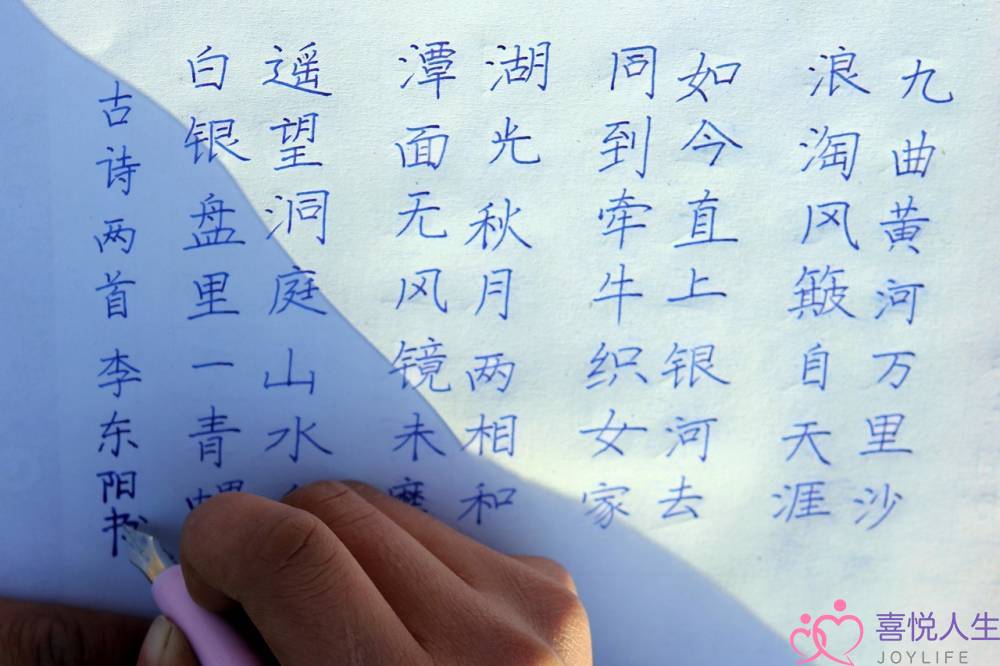 九曲黄河万里沙
浪淘风簸自天涯
如今直上银河去
同到牵牛织女家
湖光秋月两相和
潭面无风镜未磨
遥望洞庭山水
白银盘里一青螺
古诗两首 李东阳书
喜悦人生
JOYLIFE